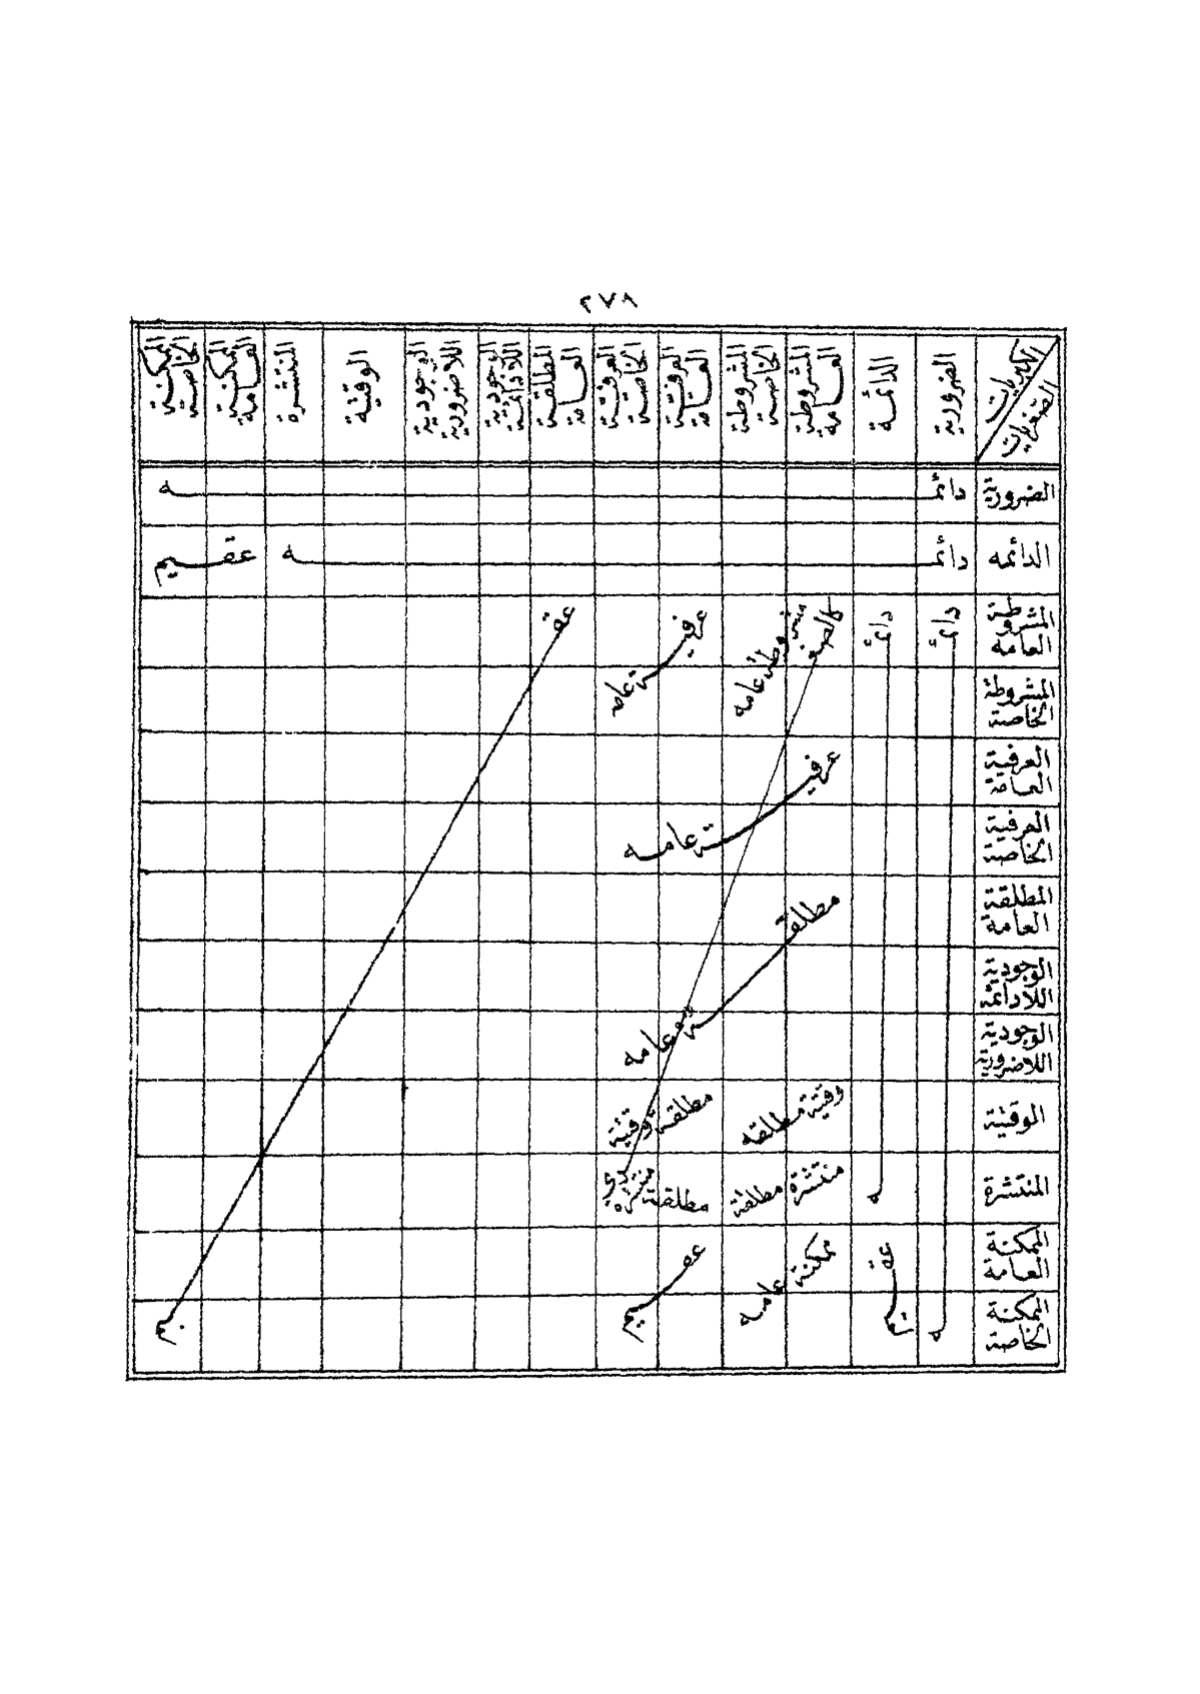 ٢٧٨
الكبريات
الصغريات
الضرورية
الدائمة
المشروطة العامة
المشروطة الخاصة
العرفية العامة
العرفية الخاصة
المطلقة العامة
الوجودية اللادائمة
الوجودية اللاضرورية
الوقتية
المنتشرة
الممكنة العامة
الممكنة الخاصة
الضرورية
دائمـــه
الدائمه
دائمـــه
عقـــيم
المشروطة العامه
دائمـــه
دائمـــه
كالصغرى
مشروطة عامه
عرفيـــة عامه
عقـــيم
المشروطة الخاصة
العرفية العامة
عرفيـــة عامـــه
العرفية الخاصة
المطلقة العامة
مطلقـــة عامه
الوجودية اللادائمة
الوجودية اللاضرورية
الوقتية
وقتية مطلقه
مطلقة وقتية
المنتشرة
منتشرة مطلقة
مطلقة منتشره
الممكنة العامة
عقـــيم
ممكنة عامه
عقـــيم
الممكنة الخاصة